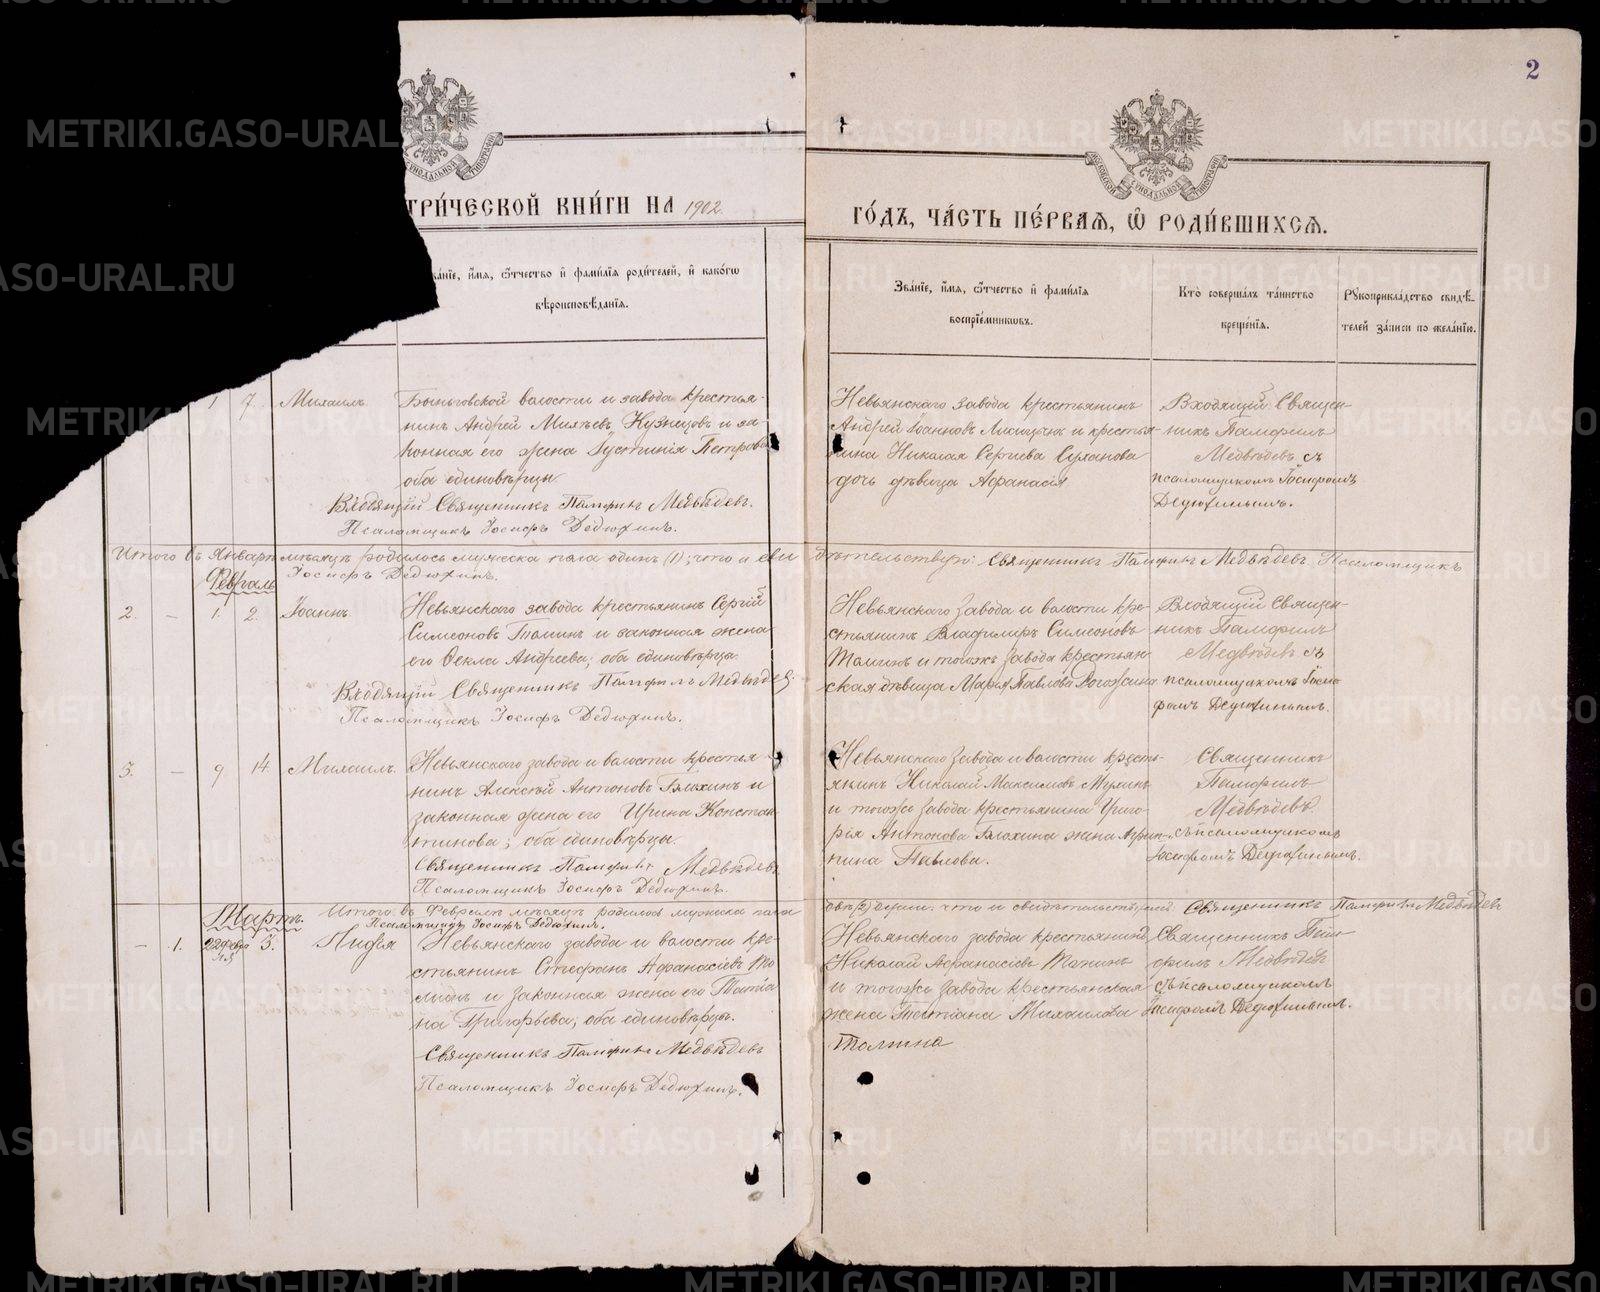 2
МОСКОВСКОЙ СѴНОДАЛЬНОЙ ТИПОГРАФІИ
ТРИ́ЧЕСКОЙ КНИ́ГИ НА 1902.
ГО́ДЪ, ЧА́СТЬ ПЕ́РВАѦ, Ѡ҆ РОДИ́ВШИХСѦ.
ва́нїе, и҆́мѧ, ѻ҆́тчество и҆ фами́лїѧ роди́телей, и҆ како́гѡ
вѣроисповѣ́данїѧ.
Зва́нїе, и҆́мѧ, ѻ҆́тчество и҆ фами́лїѧ
воспрїе́мникѡвъ.
Кто̀ соверша́лъ та́инство
креще́нїѧ.
Рꙋкоприкла́дство свидѣ́-
телей за́писи по жела́нїю.
1 7. Михаилъ.
Быньговской волости и завода кресть-
янинъ Андрей Кузнецовъ и за-
конная его жена Іустинія Петрова
оба единовѣрцы.
Входящій Священникъ Памфилъ Медвѣдевъ.
Псаломщикъ Іосифъ Дедюхинъ.
Невьянскаго завода крестьянинъ
Андрей Іоанновъ и крестья-
нина Николая Сергіева Суханова
дочь дѣвица Афанасія
Входящій Священ-
никъ Памфилъ
Медвѣдевъ съ
псаломщикомъ Іосифомъ
Дедюхинымъ.
Итого въ Январѣ мѣсяцѣ родилось мужеска пола одинъ (1); что и сви
дѣтельствуемъ: Священникъ Памфилъ Медвѣдевъ, Псаломщикъ
Іосифъ Дедюхинъ.
Февраль
2. — 1. 2. Іоаннъ.
Невьянскаго завода крестьянинъ Сергій
Симеоновъ Томинъ и законная жена
его Ѳекла Андреева; оба единовѣрцы.
Входящій Священникъ Памфилъ Медвѣдевъ;
Псаломщикъ Іосифъ Дедюхинъ.
Невьянскаго завода и волости кре-
стьянинъ Владимиръ Симеоновъ
Томинъ и тогожъ завода крестьян
ская дѣвица Марія Павлова Рогожина
Входящій Священ-
никъ Памфилъ
Медвѣдевъ съ
псаломщикомъ Іоси-
фомъ Дедюхинымъ.
3. — 9 14. Михаилъ.
Невьянскаго завода и волости крестья-
нинъ Алексѣй Антоновъ Блохинъ и
законная жена его Ирина Констан
тинова; оба единовѣрцы.
Священникъ Памфилъ Медвѣдевъ
Псаломщикъ Іосифъ Дедюхинъ.
Невьянскаго завода и волости кресть-
янинъ Николай Максимовъ Мухинъ
и тогожъ завода крестьянина Григо-
рія Антонова Блохина жена Агрип-
пина Павлова.
Священникъ
Памфилъ
Медвѣдевъ
съ псаломщикомъ
Іосифомъ Дедюхинымъ.
Мартъ.
Итого въ Февралѣ мѣсяцѣ родилось мужеска пола
два (2) что и свидѣтельствуемъ: Священникъ Памфилъ Медвѣдевъ
Псаломщикъ Іосифъ Дедюхинъ.
— 1. 22 3.
Невьянскаго завода и волости кре-
стьянинъ Стефанъ Афанасіевъ То
минъ и законная жена его Татіа
на Григорьева; оба единовѣрцы.
Священникъ Памфилъ Медвѣдевъ
Псаломщикъ Іосифъ Дедюхинъ.
Невьянскаго завода крестьянинъ
Николай Афанасіевъ Томинъ
и тогожъ завода крестьянская
жена Татіана Михайлова
Толмина
Священникъ Пам
филъ Медвѣдевъ
съ псаломщикомъ
Іосифомъ Дедюхинымъ.
METRIKI.GASO-URAL.RU